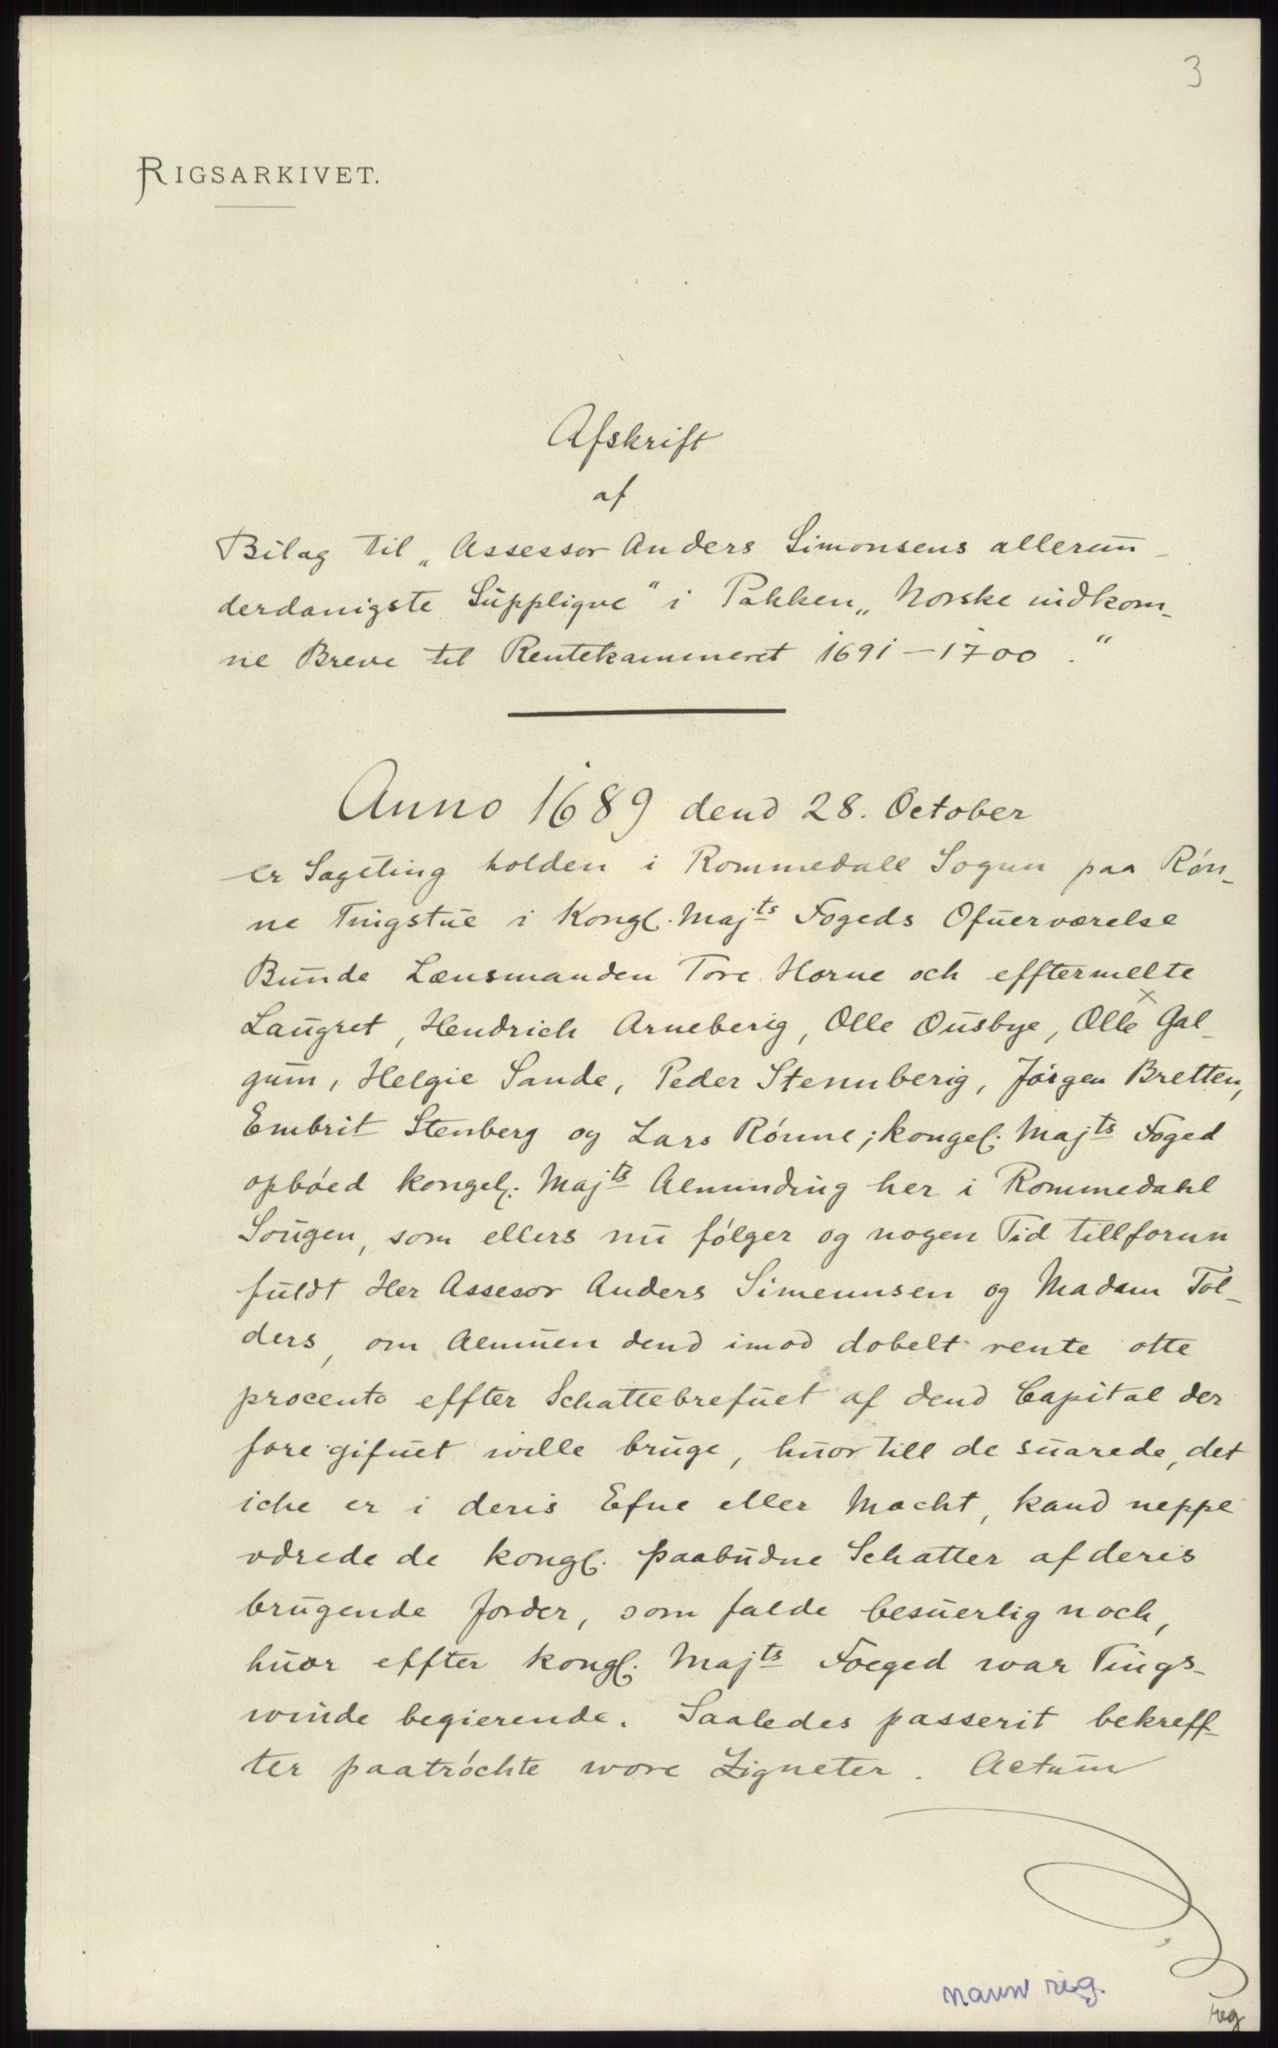 3
RIGSARKIVET.
Afskrift
af
Bilag til „Assessor Anders Simonsens allerun-
derdanigste Supplique" i Pakken „Norske indkom-
ne Breve til Rentekammeret 1691-1700."
Anno 1689 dend 28. October
er Sageting holden i Rommedall Sogun paa Røn-
ne Tingstue i Kongl. Majts Fogeds Ofuerværelse
Bunde Lænsmanden Tore Horne och efftermelte
Laugret, Hendrich Arneberig, Olle Ousbye, Olle x Gal-
gum, Helgie Sande, Peder Stennberig, Jørgen Bretten,
Embrit Stenberg og Lars Rønne; kongel. Majts Foged
opbøed kongel. Majts Alminding her i Rommedahl
Sougen, som ellers nu følger og nogen Tid tillforun
fuldt Her Assesor Anders Simennsen og Madam Tol-
ders, om Almuen dend imod dobelt rente otte
procento effter Schattebrefuet af dend Capital der
fore gifuet wille bruge, huor till de suarede, det
iche er i deris Efne eller Macht, kand neppe
udrede de kongl. paabudne Schatter af deris
brugende Jorder, som falde besuerlig noch,
huor effter kongl. Majts Foeged war Tings-
winde begierende. Saaledes passerit bekreff-
ter paatrøchte wore Zigneter. Actum
navn reg.
reg